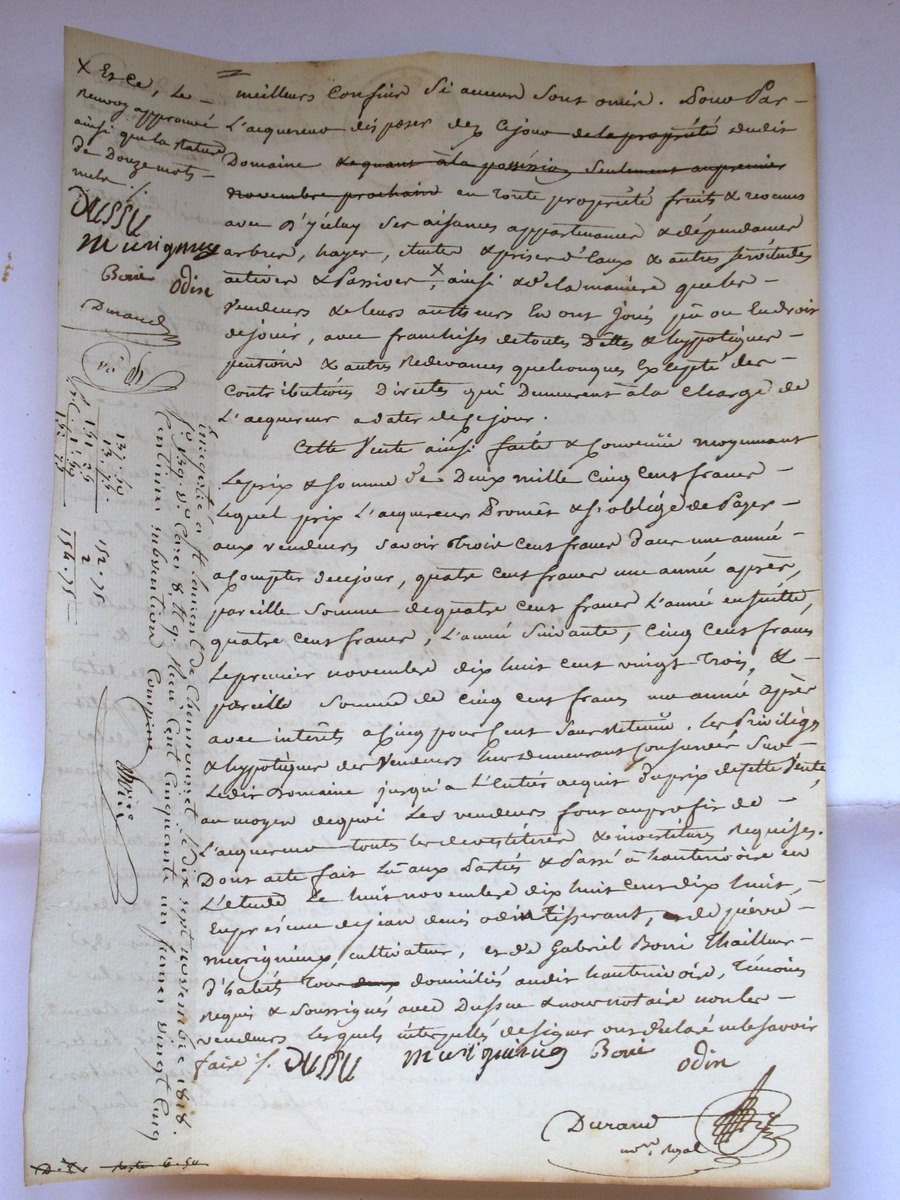 x Et ce, Le
Renvoy approuvé
ainsi que la rature
de Douze mots
nuls ./.
DUSSU
murigneux
Boni odin
Durand
meilleurs Confins Si aucuns Sont omis. Pour Par
L'acquereur disposer dez Cejour de la propriété dudit
Domaine & quant à la possession Seulement au premier
novembre prochain en toute propriété fruits & revenus
avec d'y celuy Ses aisances appartenances & dépendances
arbres, hayes, & prises d'Eaux & autres servitudes
actives & Passives x, ainsi & de la manière que les
vendeurs & leurs autheurs En ont Jouis pu ou du Droit
de jouir, avec franchises de toutes Dettes & hypotèques
pensions & autres Redevances quelconques Excepté des
Contributions Directes qui Demeurent à la Charge de
L'acquereur a dater de Cejour.
Cette Vente ainsi faite & Convenüe moyennant
Le prix & Somme de Deux mille Cinq Cent francs
Lequel prix L'acquereur Promêt & S'oblige de Payer
aux vendeurs Savoir trois Cent francs dans une année
a Compter de cejour, quatre Cent francs une année après,
pareille Somme de quatre Cent francs L'année ensuitte,
quatre Cent francs, L'année Suivante, Cinq Cent francs
Le premier novembre dix huit Cent vingt trois, &
pareille Somme de Cinq Cent francs une année après
avec interêts a Cinq pour Cent Sans retenüe. Les Privilèges
& hypotèques des Vendeurs Leur demeurant Conservés Sur
Ledit Domaine jusqu'à L'Entier acquit du prix de Cette Vente,
au moyen de quoi Les vendeurs font au profit de
L'acquereur toutes les devestitures & investitures Requises.
Dont acte fait Lû aux Parties & Passé à hauterivoire en
L'etude Le huit novembre dix huit Cent dix huit,
En présence de jean denis odin tisserant, de pierre
murigneux, cultivateur, et de Gabriel Boni thailleur
d'habits tous deux domiciliés audit hauterivoire, Témoins
Requis & Soussignés avec Dussu & nous notaire non les
vendeurs Lesquels interpellés de signer ont déclaré ne le savoir
faire ./. DUSSU murigneux Boni odin
Durand
not.re Royal
Enregistré à St Laurent de Chamousset le dix sept novembre 1818.
f.o 139 v.o Cases 8 & 9. Reçu Cent Cinquante un francs vingt Cinq
Centimes subvention Comprise
137.50
13.75
151.25
1.50
152.75
152.75
2
154.75